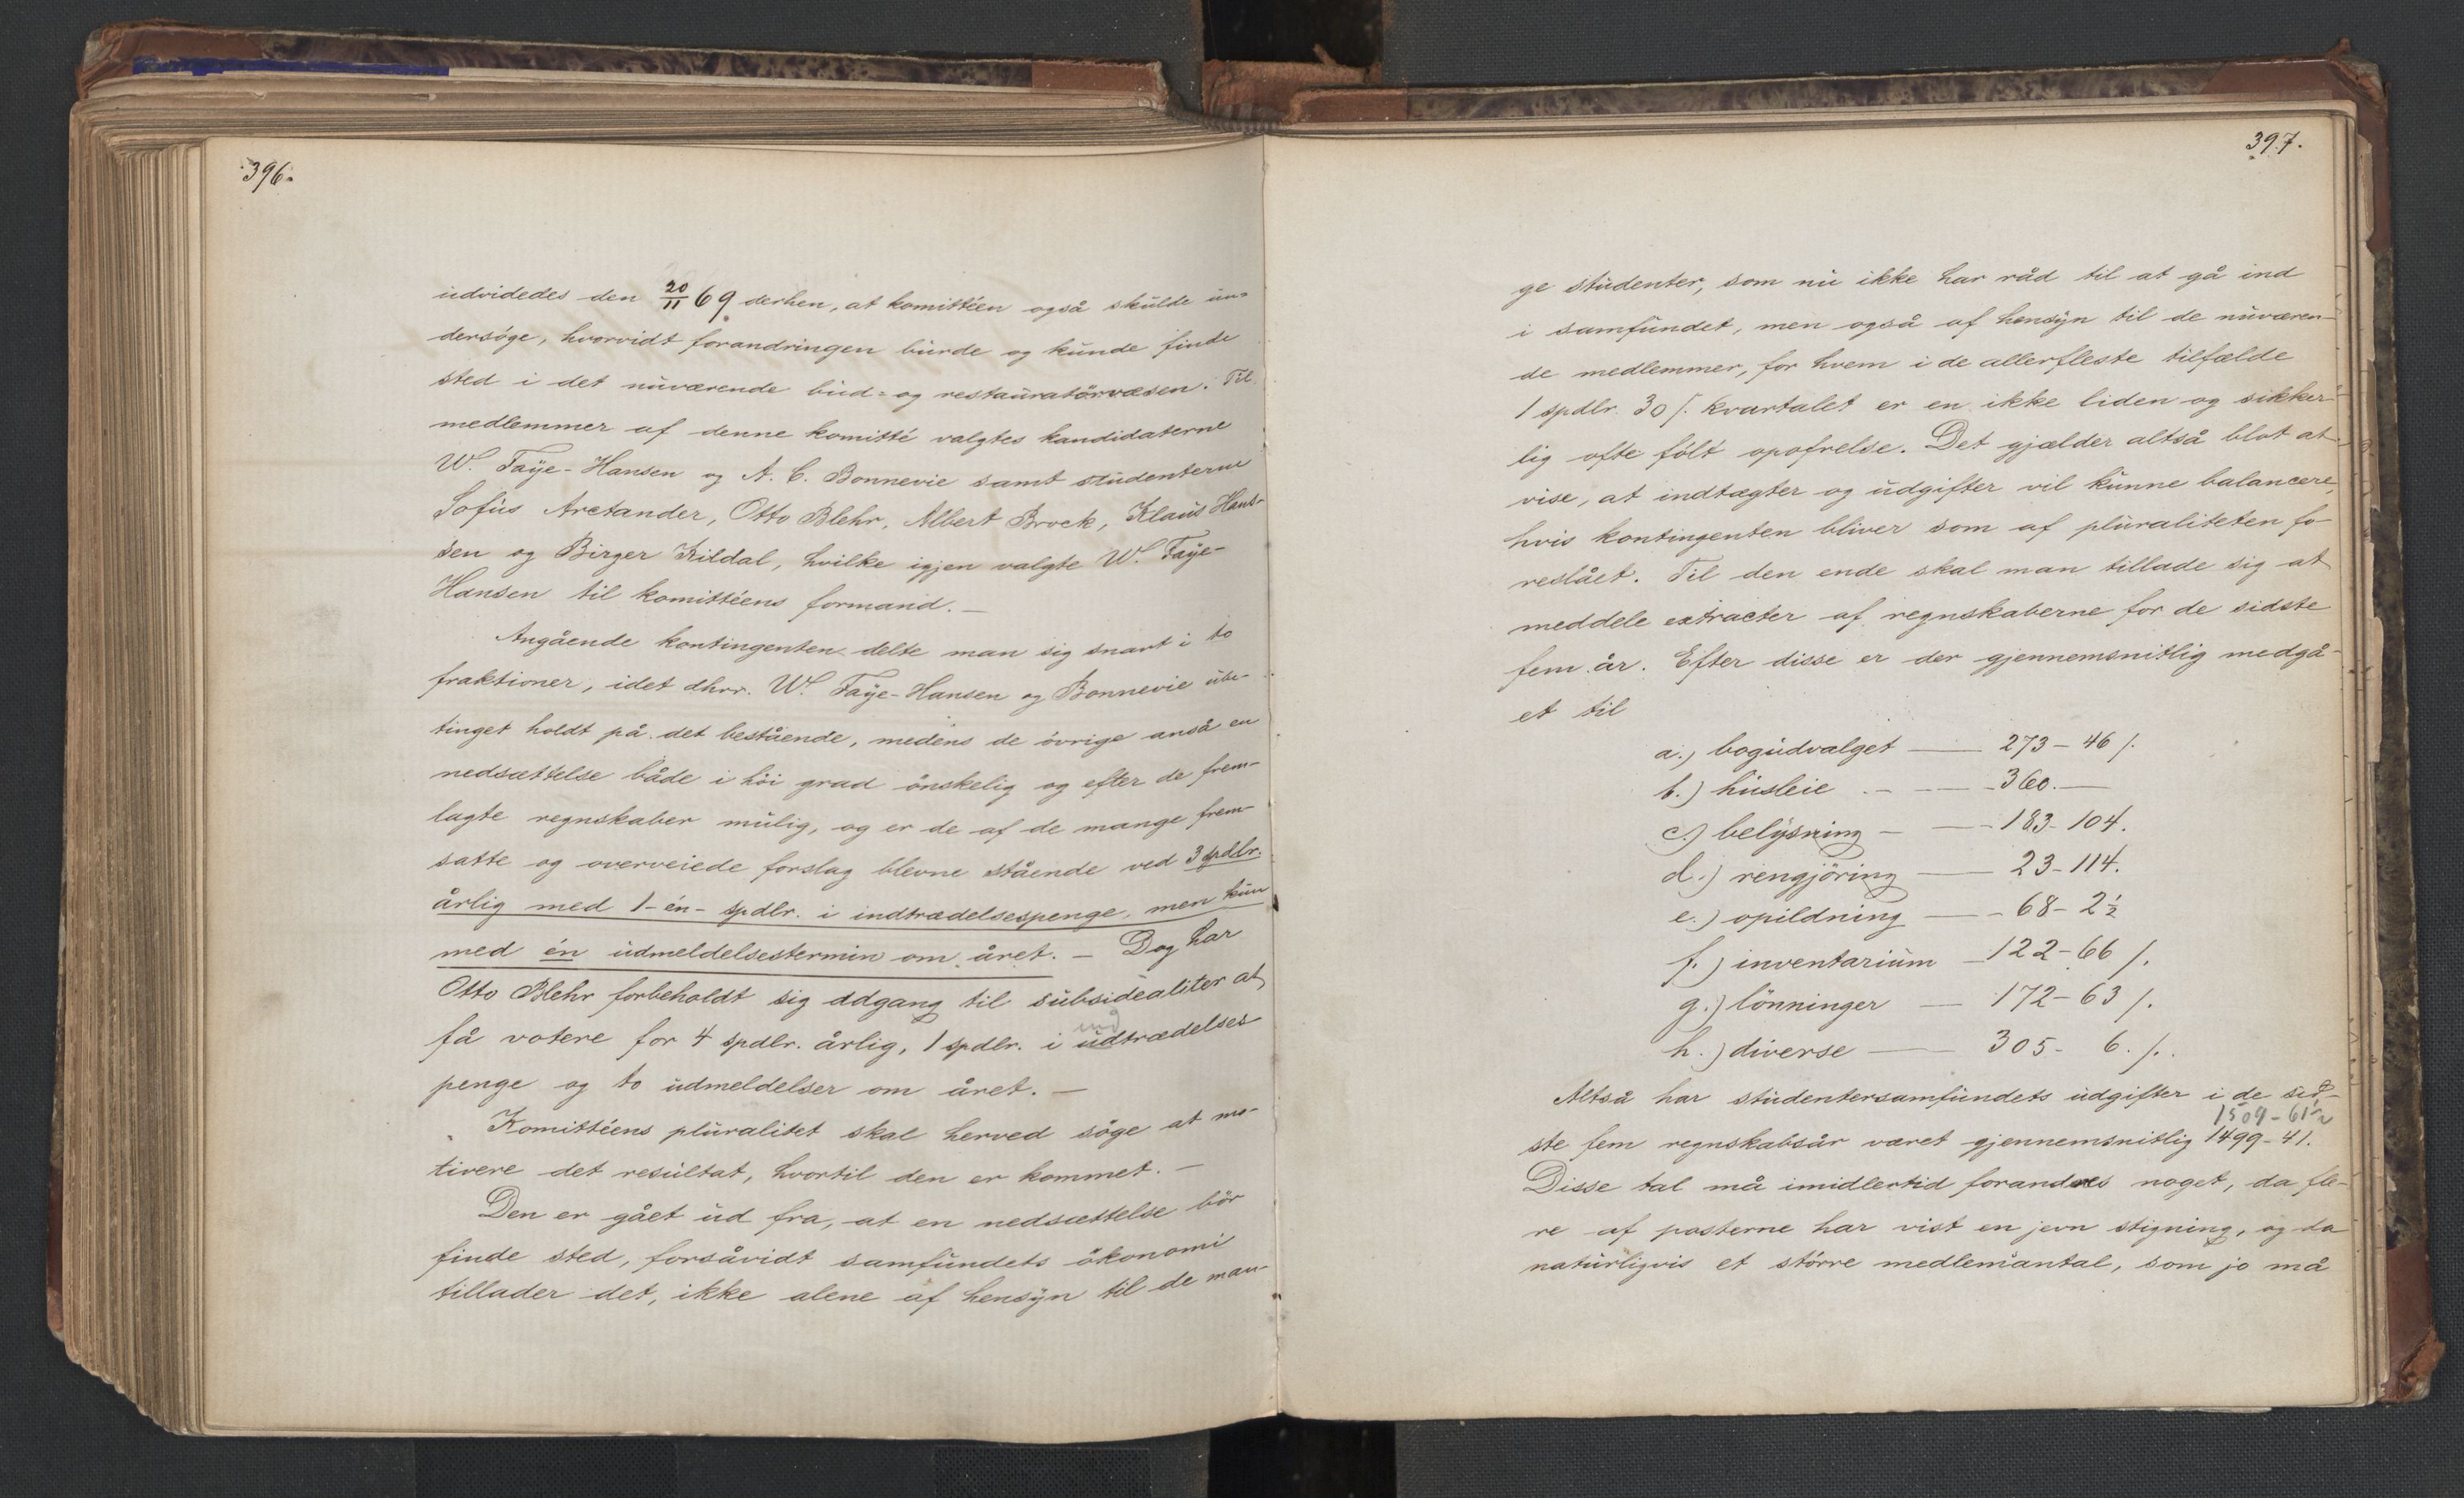 396.
udvidedes den 20/11 69 derhen, at komittéen også skulde un-
dersöge, hvorvidt forandringen burde og kunde finde
sted i det nuværende bud- og restauratörvæsen. Til
medlemmer af denne komitté valgtes kandidaterne
W. Faÿe-Hansen og A. C. Bonnevie samt studenterne
Sofus Arctander, Otto Blehr, Albert Brock, Klaus Han-
sen og Birger Kildal, hvilke igjen valgte W. Faÿe-
Hansen til komittéens formand. —
Angående kontingenten delte man sig snart i to
fraktioner, idet dhrr. W. Faÿe-Hansen og Bonnevie ube-
tinget holdt på det bestående, medens de övrige anså en
nedsættelse både i höi grad önskelig og efter de frem-
lagte regnskaber mulig, og er de af de mange frem-
satte og overveiede forslag blevne stående ved 3 spdlr.
årlig med 1 - én - spdlr. i indtrædelsespenge, men kun
med én udmeldelsestermin om året. — Dog har
Otto Blehr forbeholdt sig adgang til subsidealiter at
få votere for 4 spdlr. årlig, 1 spdlr. i udtrædelses
ind
penge og to udmeldelser om året. —
Komittéens pluralitet skal herved söge at mo-
tivere det resultat, hvortil den er kommet. —
Den er gået ud fra, at en nedsættelse bör
finde sted, forsåvidt samfundets ökonomi
tillader det, ikke alene af hensÿn til de man-
397.
ge studenter, som nu ikke har råd til at gå ind
i samfundet, men også af hensÿn til de nuværen-
de medlemmer, for hvem i de allerfleste tilfælde
1 spdlr. 30 /. kvartalet er en ikke liden og sikker-
lig ofte fölt opofrelse. Det gjælder altså blot at
vise, at indtægter og udgifter vil kunne balancere,
hvis kontingenten bliver som af pluraliteten fo-
reslået. Til den ende skal man tillade sig at
meddele extracter af regnskaberne for de sidste
fem år. Efter disse er der gjennemsnitlig medgå-
et til
a.) bogudvalget — 273 - 46 /.
b.) husleie — 360. —
c.) belÿsning — 183 - 104.
d.) rengjöring — 23 - 114.
e.) opildning — 68 - 2½
f.) inventarium — 122 - 66 /.
g.) lönninger — 172 - 63 /.
h.) diverse — 305 - 6. /.
Altså har studentersamfundets udgifter i de sid-
1509 - 61½
ste fem regnskabsår været gjennemsnitlig 1499 - 41.
Disse tal må imidlertid forandres noget, da fle-
re af posterne har vist en jevn stigning, og da
naturligvis et större medlemsantal, som jo må